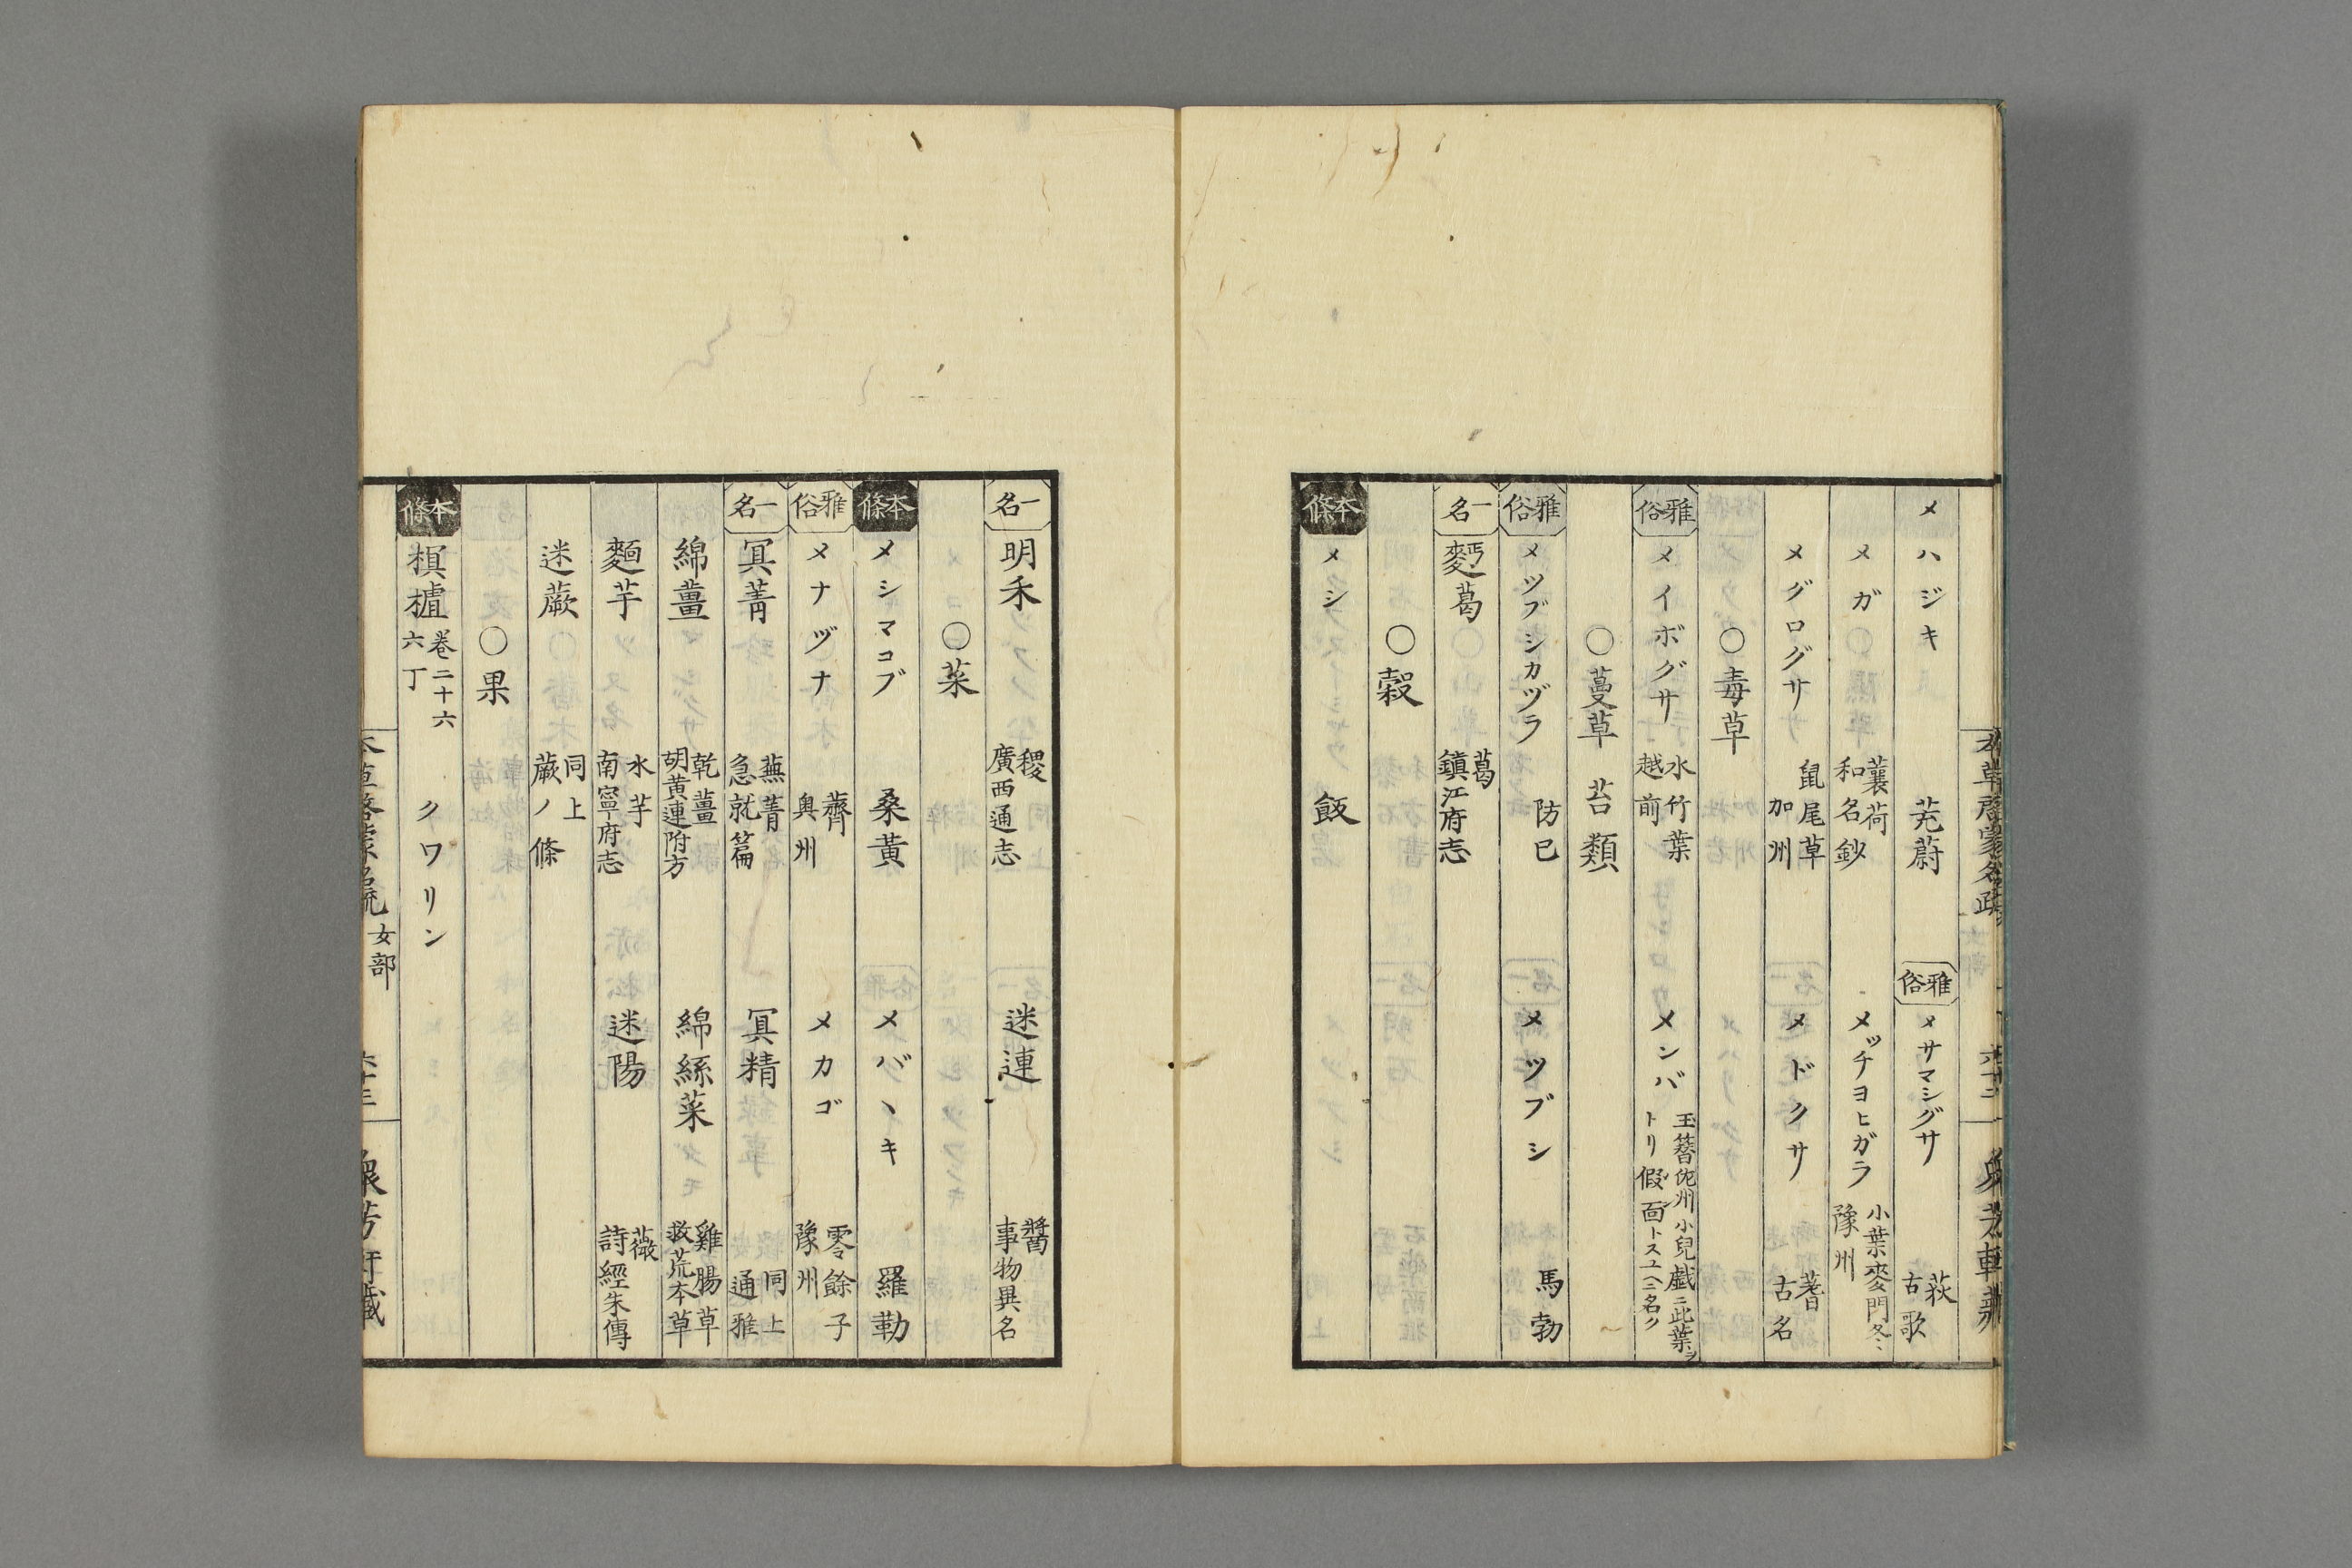 メハジキ 茺蔚 雅俗 メサマシグサ 萩 古歌
メガ 蘘荷 和名鈔 メッチヨヒガラ 小葉麥門冬 豫州
メグログサ 鼠尾草 加州 メドクサ 蓍 古名
○毒草
雅俗 メイボグサ 水竹葉 越前 メンバ 玉簪 佗州小兒戯ニ此葉ヲトリ假面トスユヘニ名ク
○蔓草 苔類
雅俗 メツブシカヅラ 防已 メツブシ 馬勃
一名 麪葛 葛 鎮江府志
○穀
本條 メシ 飯
一名 明禾 稷 廣西通志 迷連 醬 事物異名
○菜
本條 メシマコブ 桑黃 メバヽキ 羅勒
雅俗 メナヅナ 薺 奥州 メカゴ 零餘子 豫州
一名 冥菁 蕪菁 急就篇 冥精 同上 通雅
綿薑 乾薑 胡黄連附方 綿絲菜 雞腸草 救荒本草
麵芋 水芋 南寧府志 迷陽 薇 詩經朱傳
迷蕨 同上 蕨ノ條
○果
本條 榠樝 卷二十六 六丁 クワリン
女部